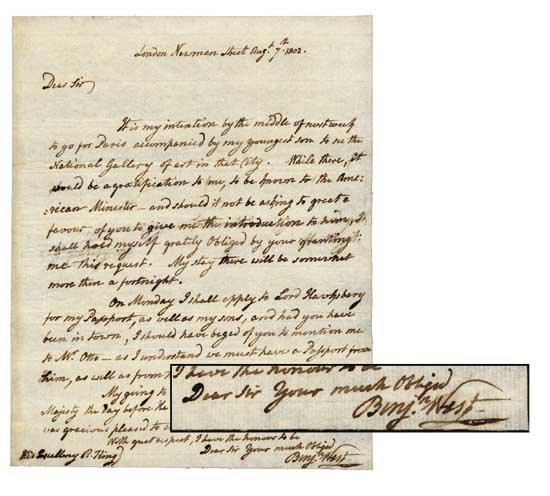 London Newman Street Augt. 7th. 1802.
Dear Sir
It is my intention by the middle of next week
to go for Paris accompanied by my youngest son to see the
National Gallery of art in that City. While there, it
would be a gratification to me, to be known to the Ame-
:rican Minister — and should it not be asking to great a
favour, of you to give me the introduction to him, I
shall hold myself grately Obliged by your granting
me this request. My stay there will be somewhat
more then a fortnight.
On Monday I shall apply to Lord Hawksbery
for my Passport, as well as my sons, and had you have
been in town, I should have beged of you to mention me
to Mr. Otto — as I understand we must have a Passport from
him, as well as from
My going to
Majesty the day before he
was gracious pleased to
With great respect, I have the honour to be
Dear Sir Your much Obliged
Benjn. West
His Excellency R. King
I have the honour to be
Dear Sir Your much Obliged
Benjn. West